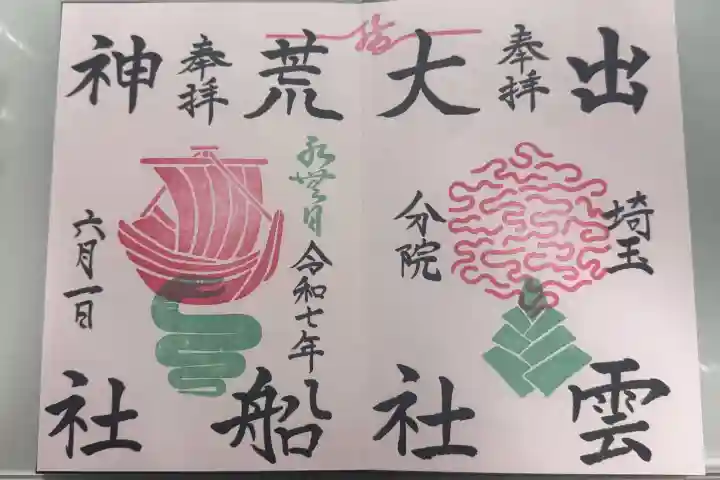 結
奉拝
出雲
大社
埼玉
分院
奉拝
荒船
神社
永無日
令和七年
六月一日